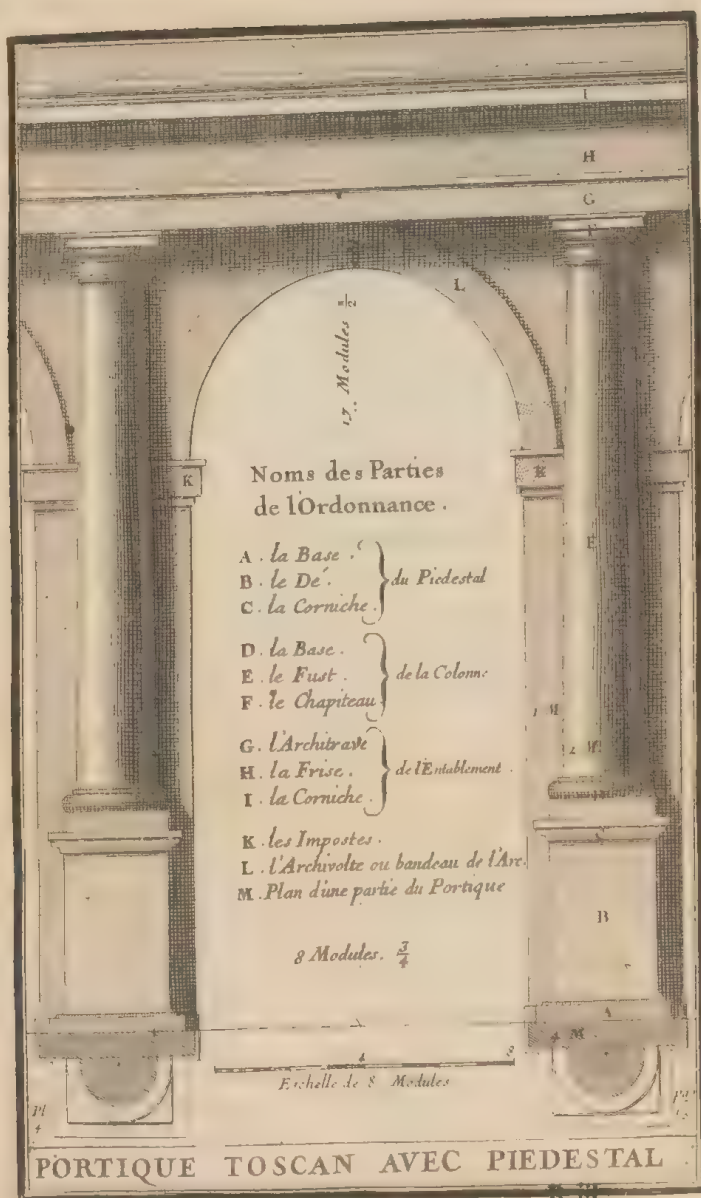 I
H
G
F
L
17 Modules 1/2
K
K
Noms des Parties
de l'Ordonnance.
E
A. la Base.
B. le Dé.
C. la Corniche.
du Piedestal
D. la Base.
E. le Fust.
F. le Chapiteau
de la Colonne
1 M
G. l'Architrave
H. la Frise.
I. la Corniche.
de l'Entablement.
2 M
K. les Impostes.
L. l'Archivolte ou bandeau de l'Arc.
M. Plan d'une partie du Portique
B
8 Modules. 3/4
A
4 M.
4 8
Eschelle de 8 Modules
Pl
4
PORTIQUE TOSCAN AVEC PIEDESTAL